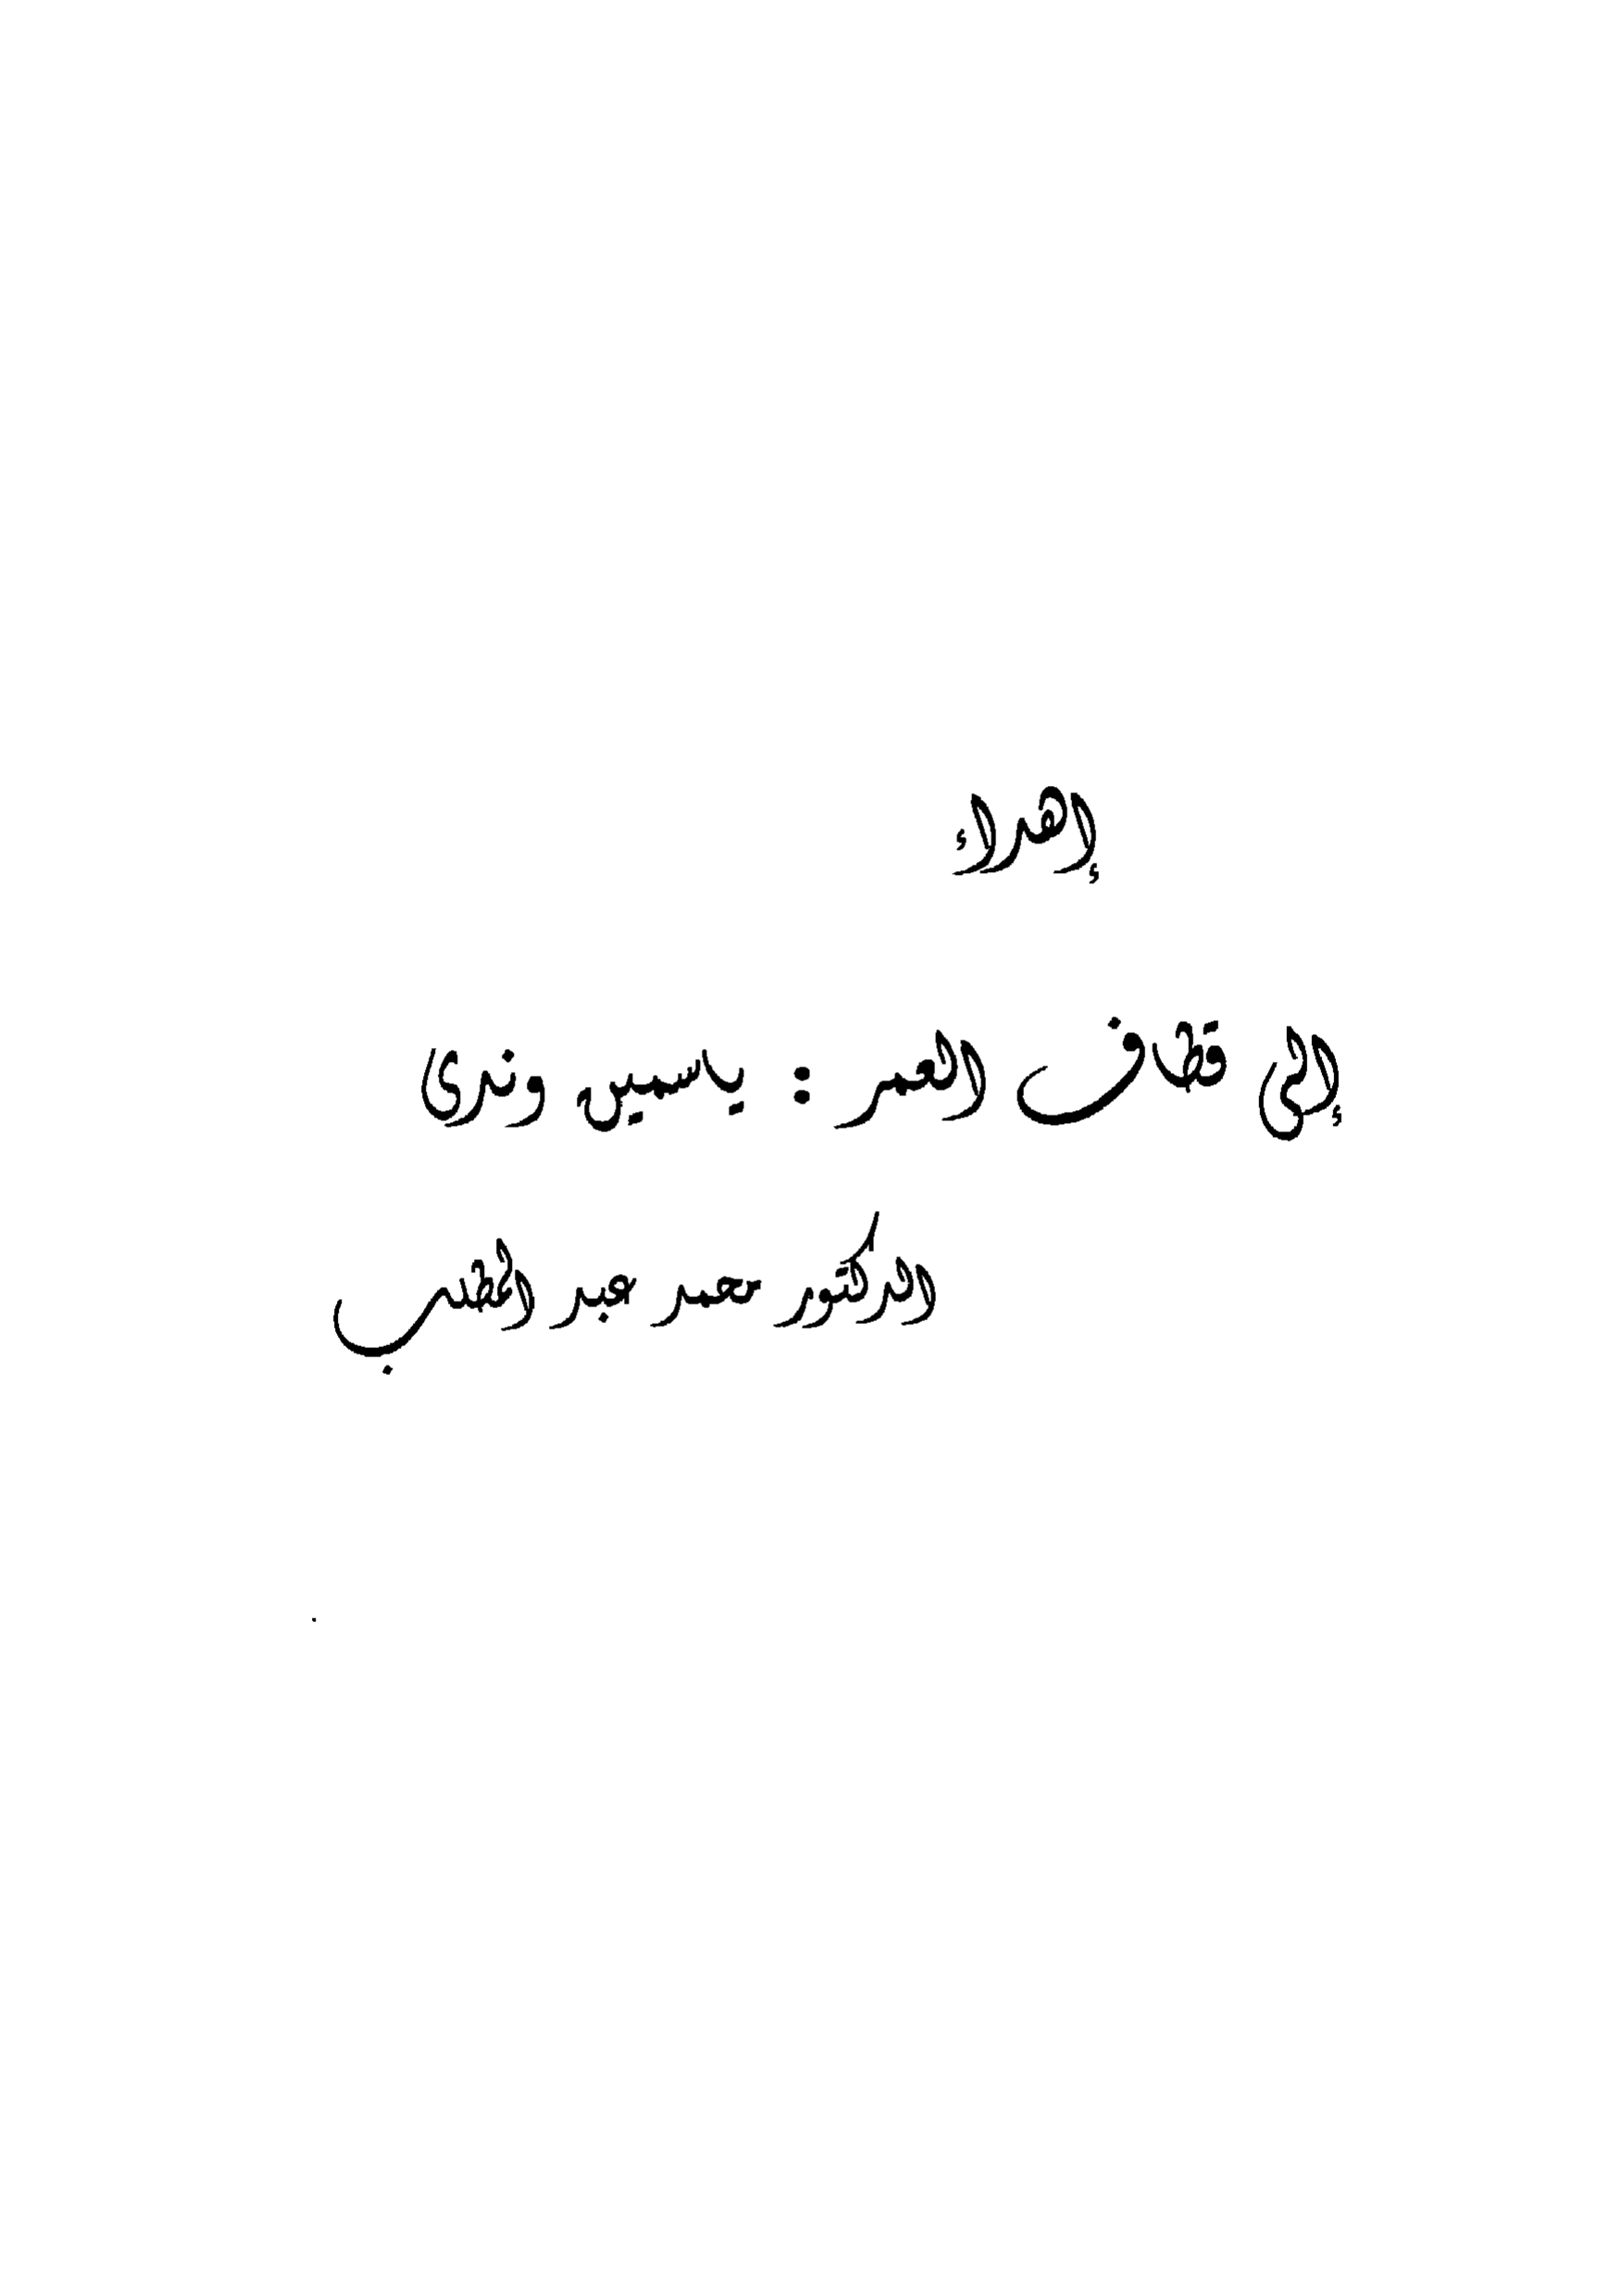 إهداء
إلى قطاف العمر : ياسمين وندى
الدكتور محمد عبد المطلب